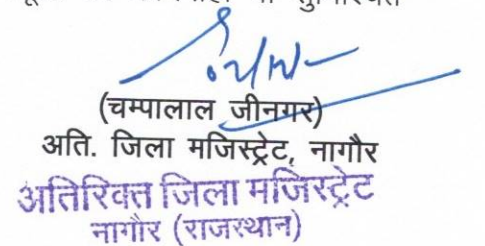 (चम्पालाल जीनगर)
अति. जिला मजिस्ट्रेट, नागौर
अतिरिक्त जिला मजिस्ट्रेट
नागौर (राजस्थान)